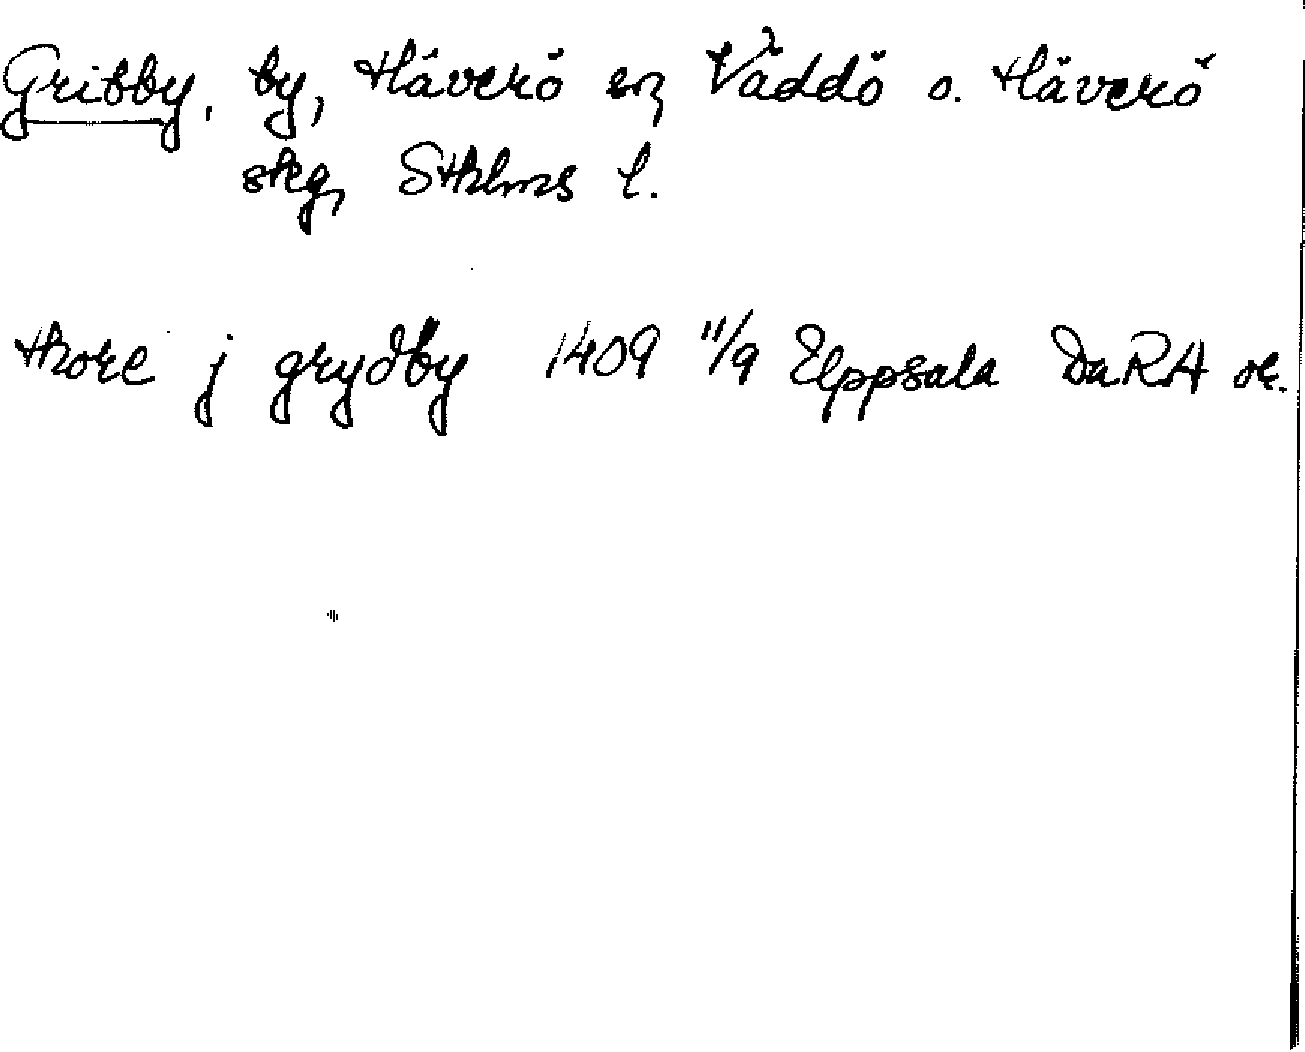 Gribby, by, Häverö sn, Väddö o. Häverö
skg, Sthlms l.
thore j grydby 1409 11/9 Uppsala DaRA or.